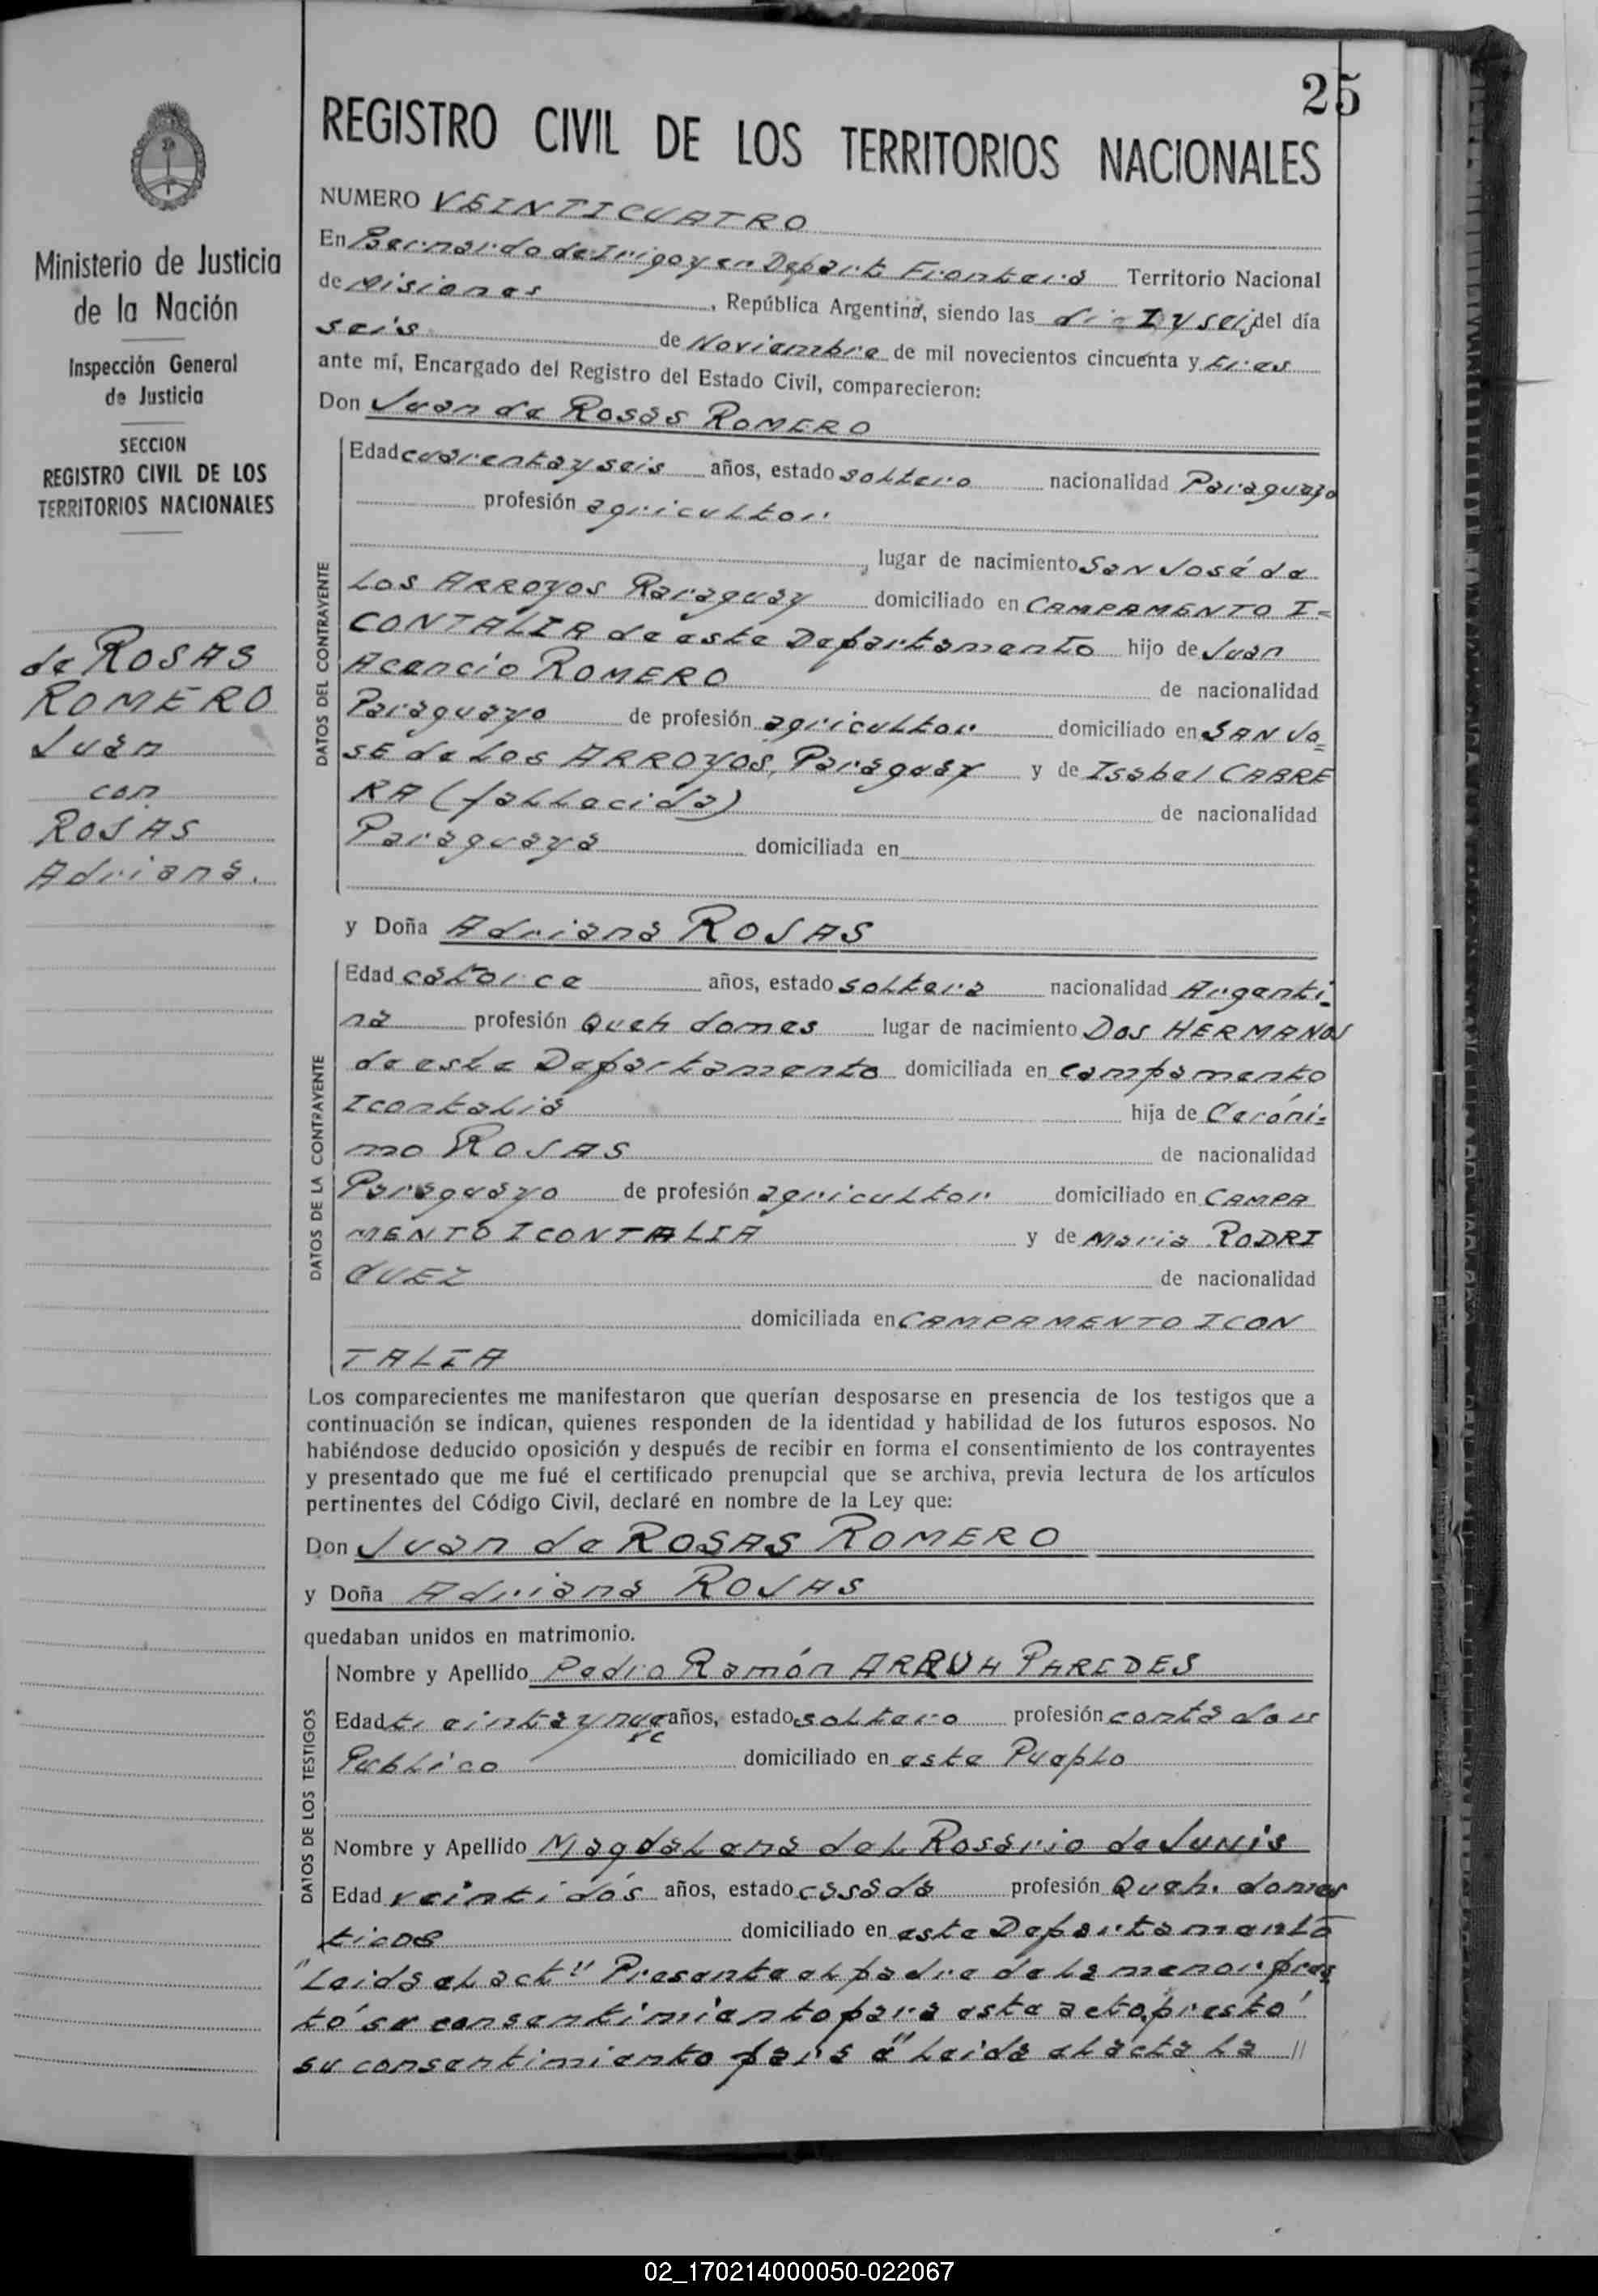 25
REGISTRO CIVIL DE LOS TERRITORIOS NACIONALES
Ministerio de Justicia
de la Nación
Inspección General
de Justicia
SECCION
REGISTRO CIVIL DE LOS
TERRITORIOS NACIONALES
de ROSAS
ROMERO
Juan
con
ROJAS
Adriana.
NUMERO VEINTICUATRO
En Bernardo de Irigoyen Depart. Frontera Territorio Nacional
de Misiones, República Argentina, siendo las diez y seis del día
seis de Noviembre de mil novecientos cincuenta y tres
ante mí, Encargado del Registro del Estado Civil, comparecieron:
Don Juan de Rosas ROMERO
DATOS DEL CONTRAYENTE
Edad cuarenta y seis años, estado soltero nacionalidad Paraguayo
profesión agricultor
, lugar de nacimiento San José de
Los ARROYOS Paraguay domiciliado en CAMPAMENTO I=
CONTALIA de este Departamento hijo de Juan
Acencio ROMERO de nacionalidad
Paraguayo de profesión agricultor domiciliado en SAN Jo=
SE de Los ARROYOS, Paraguay y de Isabel CABRE
RA (fallecida) de nacionalidad
Paraguaya domiciliada en
y Doña Adriana ROJAS
DATOS DE LA CONTRAYENTE
Edad catorce años, estado soltera nacionalidad Argenti-
na profesión Queh domes lugar de nacimiento Dos HERMANOS
de este Departamento domiciliada en campamento
Icontalia hija de Ceróni=
mo ROJAS de nacionalidad
Paraguayo de profesión agricultor domiciliado en CAMPA
MENTO ICONTALIA y de Maria RODRI
GUEZ de nacionalidad
domiciliada en CAMPAMENTO ICON
TALIA
Los comparecientes me manifestaron que querían desposarse en presencia de los testigos que a
continuación se indican, quienes responden de la identidad y habilidad de los futuros esposos. No
habiéndose deducido oposición y después de recibir en forma el consentimiento de los contrayentes
y presentado que me fué el certificado prenupcial que se archiva, previa lectura de los artículos
pertinentes del Código Civil, declaré en nombre de la Ley que:
Don Juan de ROSAS ROMERO
y Doña Adriana ROJAS
quedaban unidos en matrimonio.
DATOS DE LOS TESTIGOS
Nombre y Apellido Pedro Ramón ARRUA PAREDES
Edad treinta y nueve años, estado soltero profesión contador
Publico domiciliado en este Pueblo
Nombre y Apellido Magdalena del Rosario de Junis
Edad veintidós años, estado casada profesión Queh. domes
ticos domiciliado en este Departamento
"Leida el act" Presente el padre de la menor pres
tó su consentimiento para este acto, prestó
su consentimiento para e" Leida el acta la //
02_170214000050-022067